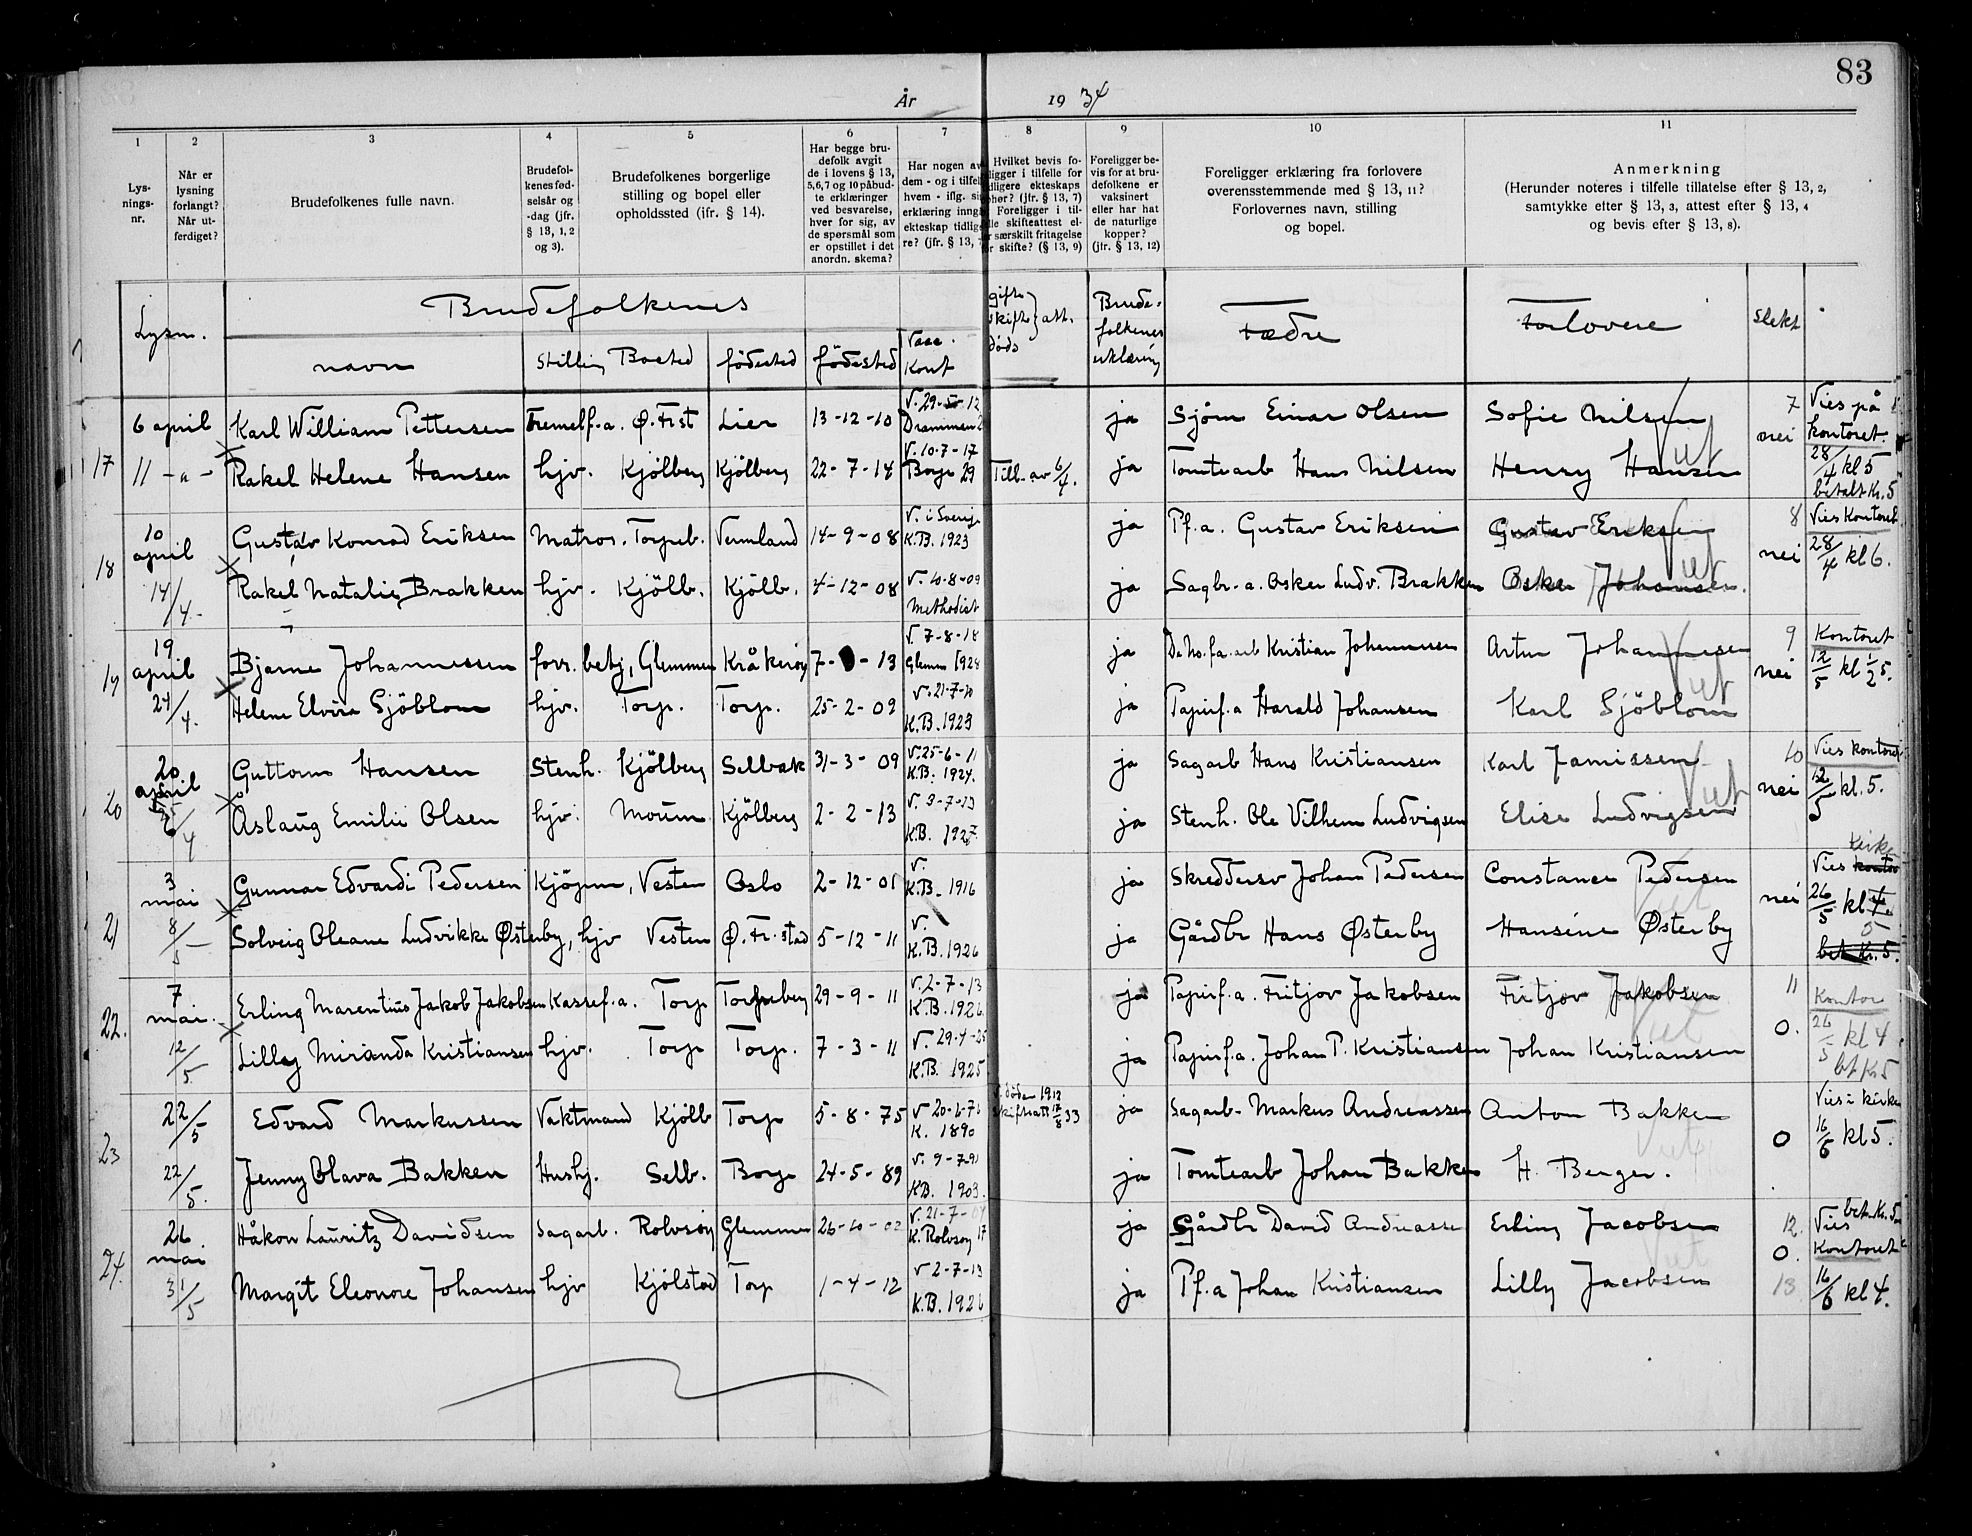 83
År 1934
1 2 3 4 5 6 7 8 9 10 11
Lys-
nings-
nr.
Når er
lysning
forlangt?
Når ut-
ferdiget?
Brudefolkenes fulle navn.
Brudefol-
kenes fød-
selsår og
-dag (jfr.
§ 13, 1, 2
og 3).
Brudefolkenes borgerlige
stilling og bopel eller
opholdssted (ifr. § 14).
Har begge bru-
defolk avgit
de i lovens § 13,
5,6,7 og 10 påbud-
te erklæringer
ved besvarelse,
hver for sig, av
de spørsmål som
er opstillet i det
anordn. skema?
Har nogen av
dem - og i tilfel
hvem - iflg. si
erklæring inngå
ekteskap tidlig
re? (jfr. § 13, 7
Hvilket bevis fo-
ligger i tilfelle for
dligere ekteskaps
phør? (jfr. § 13, 7)
Foreligger i til-
lle skifteattest el-
r særskilt fritagelse
or skifte? (§ 13, 9)
Foreligger be-
vis for at bru-
defolkene er
vaksinert
eller har hat
de naturlige
kopper?
(jfr. § 13, 12)
Foreligger erklæring fra forlovere
overensstemmende med § 13, 11?
Forlovernes navn, stilling
og bopel.
Anmerkning
(Herunder noteres i tilfelle tillatelse efter § 13, 2,
samtykke efter § 13, 3, attest efter § 13, 4
og bevis efter § 13, 8).
Lysn.
Brudefolkenes
navn
Stilling Bosted
fødested
fødested
Vacc.
Konf
gifte
skifte } att.
døds
Brude-
folkenes
erklæring
Fædre
Forlovere
Slekt
17
6 april Karl William Pettersen Fremelf.a. Ø. Frst Lier 13-12-10 V. 29-5-12 Drammen ja Sjøm Einar Olsen Sofie Nilsen 7 nei Vies på kontoret.
11 -a- Rakel Helene Hansen hjv. Kjölberg Kjölberg 22-7-14 V. 10-7-17 Borge 29 Till. av 6/4. ja Tomtearb Hans Nilsen Henry Hansen Vet 28/4 kl 5 betalt Kr. 5
18
10 april Gustav Konrad Eriksen Matros. Torpeb. Vermland 14-9-08 V. i Sverige K.B. 1923 ja Pf.a. Gustav Eriksen Gustav Eriksen 8 nei Vies Kontoret
14/4.- Rakel Natalie Brakken hjv. Kjölb. Kjölb. 4-12-08 V. 10-8-09 Methodist ja Sagbr.a. Oskar Ludv. Brakken Oskar Johansen. Vet 28/4 kl 6.
19
19 april Bjarne Johannessen forr. betj, Glemmen Kråkerøy 7- -13 V. 7-8-18 Glemm 1928 ja Kristian Johannessen Artur Johannesen 9 nei Kontoret
24/4. Helene Elvira Sjöblom hjv. Torp. Torp. 25-2-09 V. 21-7-10 K.B. 1923 ja Papirf.a Harald Johansen Karl Sjöblom Vet 12/5 kl 1/2 5.
20
20 april Guttorm Hansen Stenh. Kjölberg Selbak 31-3-09 V. 25-6-11 K.B. 1924. ja Sagarb Hans Kristiansen Karl Jamissen 10 nei Vies kontoret
25/4 Aslaug Emilie Olsen hjv. Moum Kjölberg 2-2-13 V. 3-7-13 K.B. 1927. ja Stenh. Ole Vilhelm Ludvigsen Elise Ludvigsen Vet 12/5 kl. 5.
21
3 mai Gunnar Edvardi Pedersen Kjøpm, Vesten Oslo 2-12-01 V. K.B. 1916 ja Skreddersv Johan Pedersen Constance Pedersen nei Vies kontor kirke
8/5 - Solveig Oleane Ludvikke Østerby, hjv Vesten Ø. Fr.stad 5-12-11 V. K.B. 1926 ja Gårdbr Hans Østerby Hansine Østerby Vet 26/5 kl 4. 5 bet Kr. 5.
22.
7 mai. Erling Marentius Jakob Jakobsen Kassef.a. Torp Torpeberg 29-9-11 V. 2-7-13 K.B. 1926. ja Papirf.a. Fritjov Jakobsen Fritjov Jakobsen 11 0. Kontor
12/5. Lilly Miranda Kristiansen hjv. Torp Torp. 7-3-11 V. 29-4-25 K.B. 1925 ja Papirf.a. Johan P. Kristiansen Johan Kristiansen Vet 26/5 kl 4 bt Kr 5
23
22/5 Edvard Markussen Vaktmand Kjölb Torp 5-8-75 V 20-6-76 K. 1890 V. døde 1912 Skifteatt 17/8 33 ja Sagarb. Markus Andreassen Anton Bakken 0 Vies i kirken
22/5. Jenny Olava Bakken Hushj. Selb. Borge 24-5-89 V. 9-7-91 KB. 1903. ja Tomtearb Johan Bakken H. Berger. Vet 16/6 kl 5.
24.
26 mai Håkon Lauritz Davidsen Sagarb. Rolvsøy Glemmen 26-10-02 V. 21-7-04 K. Rolvsøy 17 ja Gårdbr David Andreassen Erling Jacobsen 12. 0. bet. Kr. 5 Vies Kontoret
31/5 Margit Eleonore Johansen hjv Kjölstad Torp 1-4-12 V 2-7-13 K.B. 1926 ja Pf.a Johan Kristiansen Lilly Jacobsen Vet 13 16/6 kl 4.